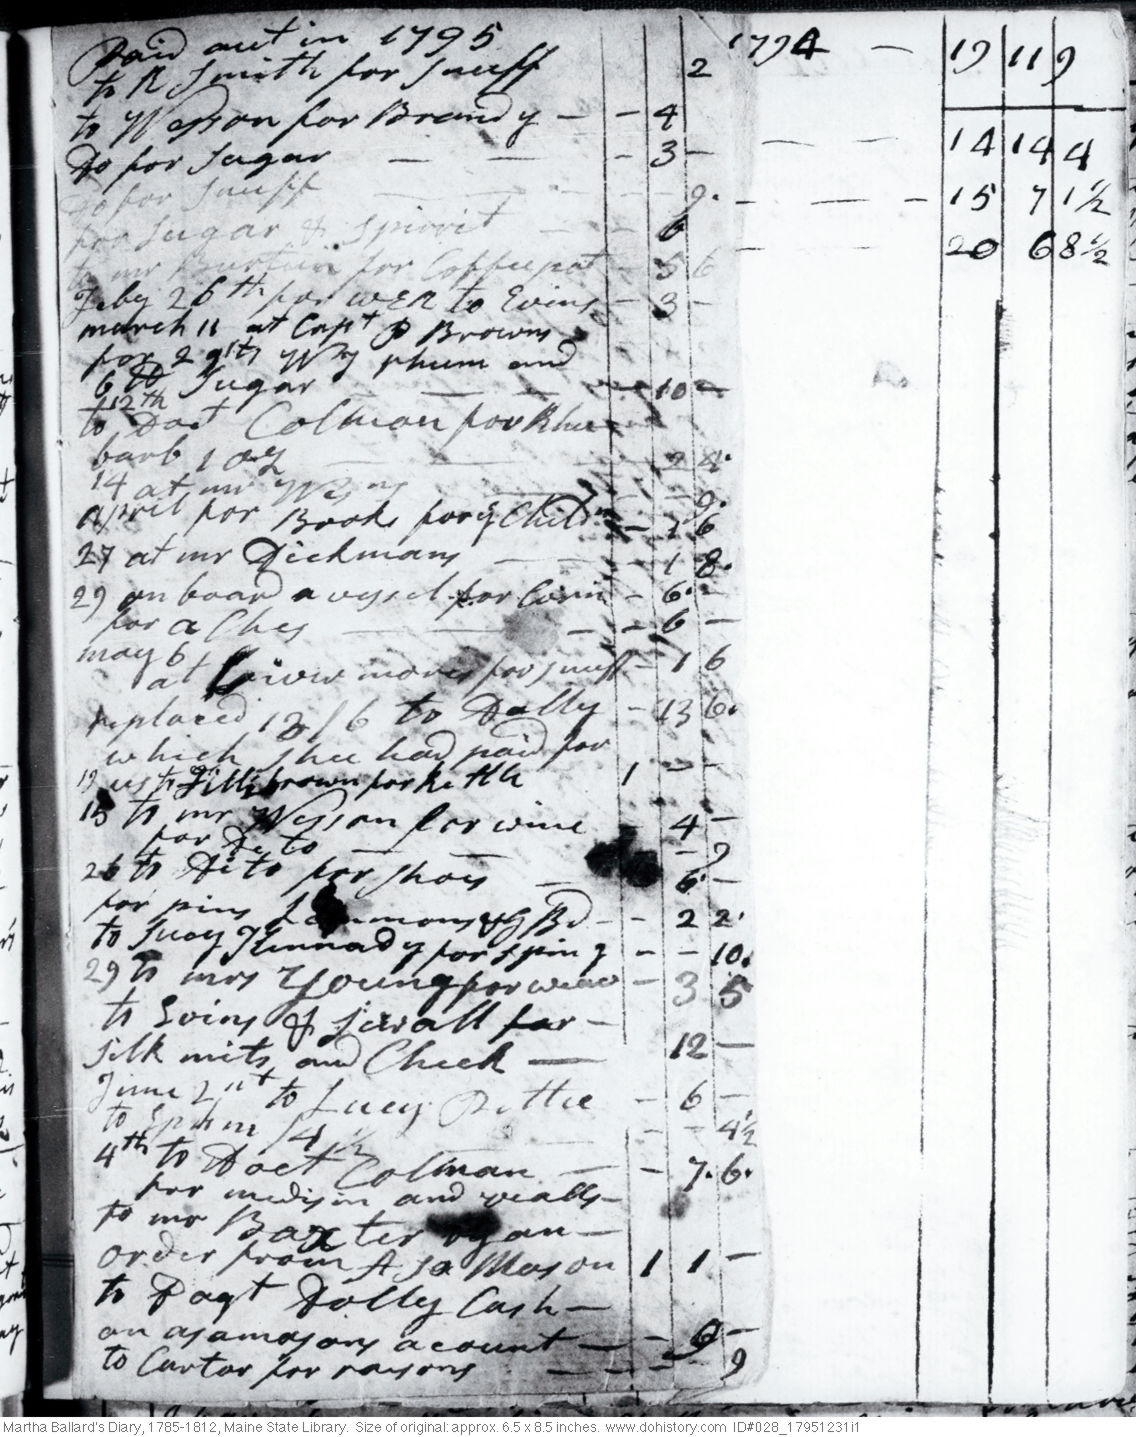 Paid out in 1795
to R Smith for snuff 2
to Wesson for Brandy - - 4
Do for Sugar - - - 3 -
Do for snuff 9.
for Sugar & Spirrit 6
to mr for Coffeepot 5 6
Feby 26th for to Evins - 3 -
march 11 at Capt Browns
for 2 qlts rhum and
6 lb Sugar - - - 10 -
12th
to Doct Colman for Rhu
barb 1 oz - - 2 4.
14 at mr - - 9.
April for Books for ye Child - 1 6
27 at mr Dickmans - - 1 8.
29 on board a vessel for Corn - 6. -
for a Ches - - - 6 -
may 6
at mores for snuff - 1 6
replaced 13/6 to Dolly - 13 6.
which shee had paid for
19 us to brown for Kettle 1 - -
15 to mr Wesson for wine 4 -
for Dito - - - 9
26 to Dito for shoes - 6. -
for pins Lemmons & - - 2 2.
to Suey Kennady for spin g - - 10.
29 to mrs Young for weav - 3 5
to Evins & Sewall for -
silk mits and Check - 12 -
June 2nt to Lucy - 6 -
to /4 1/2 - - 4 1/2
4th to Doct Colman - - 7. 6.
for medisin and vealls -
to mr Baxter by an -
order from Asa Mason 1 1 -
to Dagt Dolly Cash -
on asa masons acount - - 6 -
to Cartar for raisons - - - 9
1794 - 19 11 9
- - 14 14 4
- - - 15 7 1 1/2
- - 20 6 8 1/2
Martha Ballard's Diary, 1785-1812, Maine State Library. Size of original: approx. 6.5 x 8.5 inches. www.dohistory.com ID#028_17951231i1